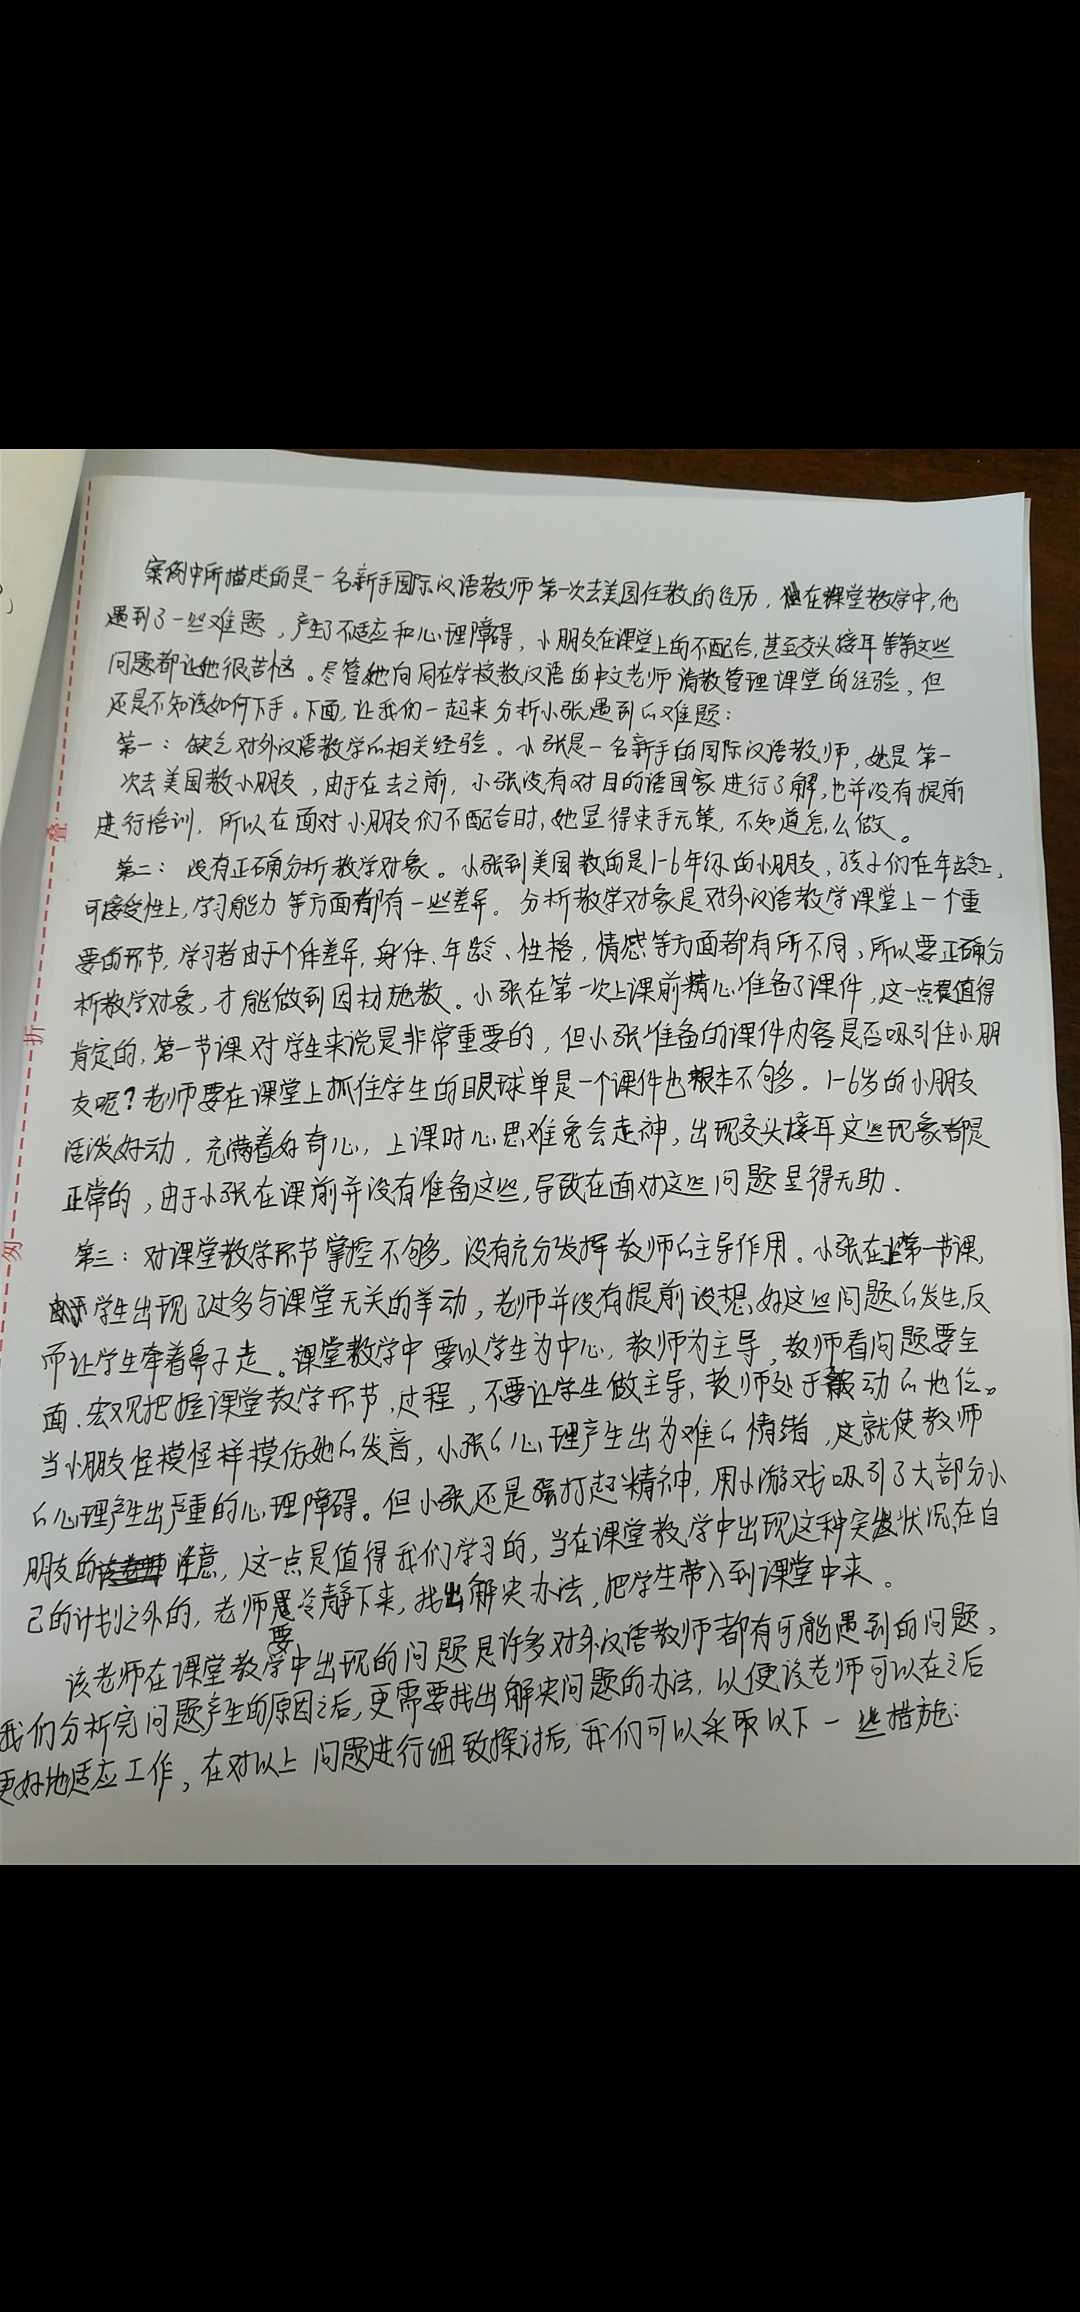 案例中所描述的是一名新手国际汉语教师第一次去美国任教的经历，但在课堂教学中，他
遇到了一些难题，产生了不适应和心理障碍，小朋友在课堂上的不配合，甚至交头接耳等等这些
问题都让她很苦恼。尽管她向同在学校教汉语的中文老师请教管理课堂的经验，但
还是不知该如何下手。下面，让我们一起来分析小张遇到的难题：
第一：缺乏对外汉语教学的相关经验。小张是一名新手的国际汉语教师，她是第一
次去美国教小朋友，由于在去之前，小张没有对目的语国家进行了解，也并没有提前
进行培训，所以在面对小朋友们不配合时，她显得束手无策，不知道怎么做。
第二：没有正确分析教学对象。小张到美国教的是1-6年级的小朋友，孩子们在年龄上，
可接受性上，学习能力等方面都有一些差异。分析教学对象是对外汉语教学课堂上一个重
要的环节，学习者由于个体差异，身体、年龄、性格，情感等方面都有所不同，所以要正确分
析教学对象，才能做到因材施教。小张在第一次上课前精心准备了课件，这一点是值得
肯定的，第一节课对学生来说是非常重要的，但小张准备的课件内容是否吸引住小朋
友呢？老师要在课堂上抓住学生的眼球单是一个课件也根本不够。1-6岁的小朋友
活泼好动，充满着好奇心，上课时心思难免会走神，出现交头接耳这些现象都是
正常的，由于小张在课前并没有准备这些，导致在面对这些问题显得无助.
第三：对课堂教学环节掌控不够，没有充分发挥教师的主导作用。小张在上第一节课，
由于学生出现了过多与课堂无关的举动，老师并没有提前设想好这些问题的发生，反
而让学生牵着鼻子走。课堂教学中要以学生为中心，教师为主导，教师看问题要全
面，宏观把握课堂教学环节，过程，不要让学生做主导，教师处于被动的地位。
当小朋友怪模怪样模仿她的发音，小张的心理产生出为难的情绪，这就使教师
的心理产生出严重的心理障碍。但小张还是强打起精神，用小游戏吸引了大部分小
朋友的注意，这一点是值得我们学习的，当在课堂教学中出现这种突发状况，在自
己的计划之外的，老师要冷静下来，找出解决办法，把学生带入到课堂中来。
该老师在课堂教学中出现的问题是许多对外汉语教师都有可能遇到的问题，
我们分析完问题产生的原因之后，更需要找出解决问题的办法，以便该老师可以在之后
更好地适应工作，在对以上问题进行细致探讨后，我们可以采取以下一些措施：
叠
折
匆